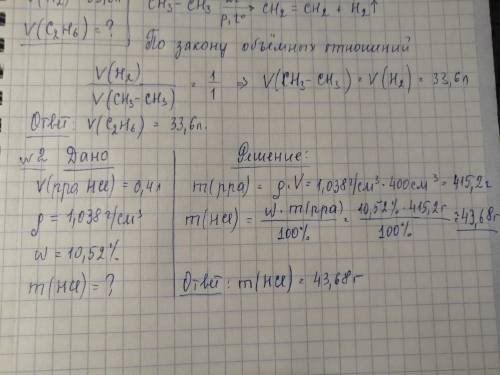 CH₃-CH₃ → CH₂ = CH₂ + H₂↑
p, t°
V(C₂H₆) = ?
По закону объёмных отношений
V(H₂) / V(CH₃-CH₃) = 1/1 ⇒ V(CH₃-CH₃) = V(H₂) = 33,6л
Ответ: V(C₂H₆) = 33,6л.
№2 Дано
V(рра HCl) = 0,4л
ρ = 1,038г/см³
ω = 10,52%
m(HCl) = ?
Решение:
m(рра) = ρ·V = 1,038г/см³·400см³ = 415,2г
m(HCl) = ω·m(рра) / 100% = 10,52%·415,2г / 100% = 43,68г
Ответ: m(HCl) = 43,68г